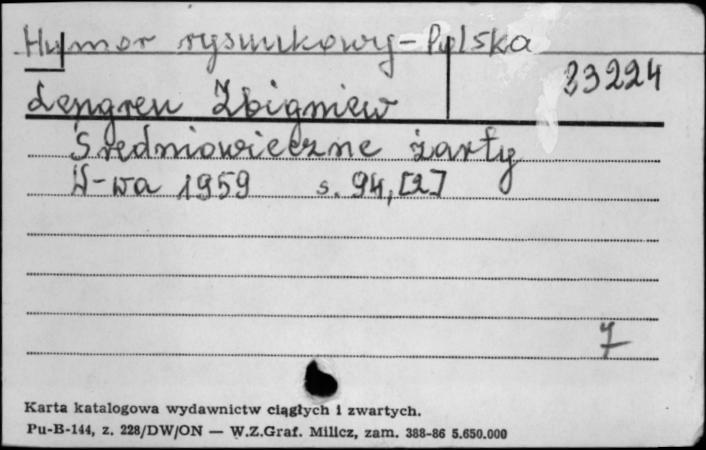 Humor rysunkowy - Polska
33224
Lengren Zbigniew
Średniowieczne żarty
W-wa 1959 s. 94, [2]
7
Karta katalogowa wydawnictw ciągłych i zwartych.
Pu-B-144, z. 228/DW/ON — W.Z.Graf. Milicz, zam. 388-86 5.650.000